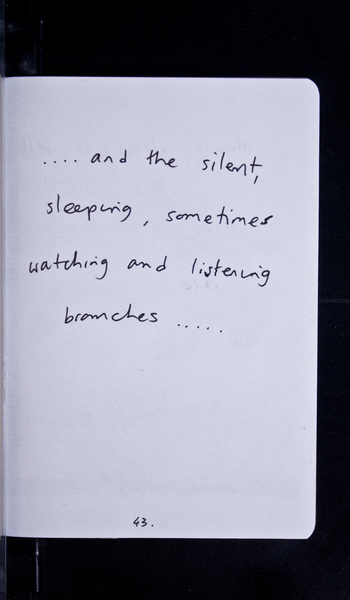 .... and the silent,
sleeping, sometimes
watching and listening
branches .....
43.